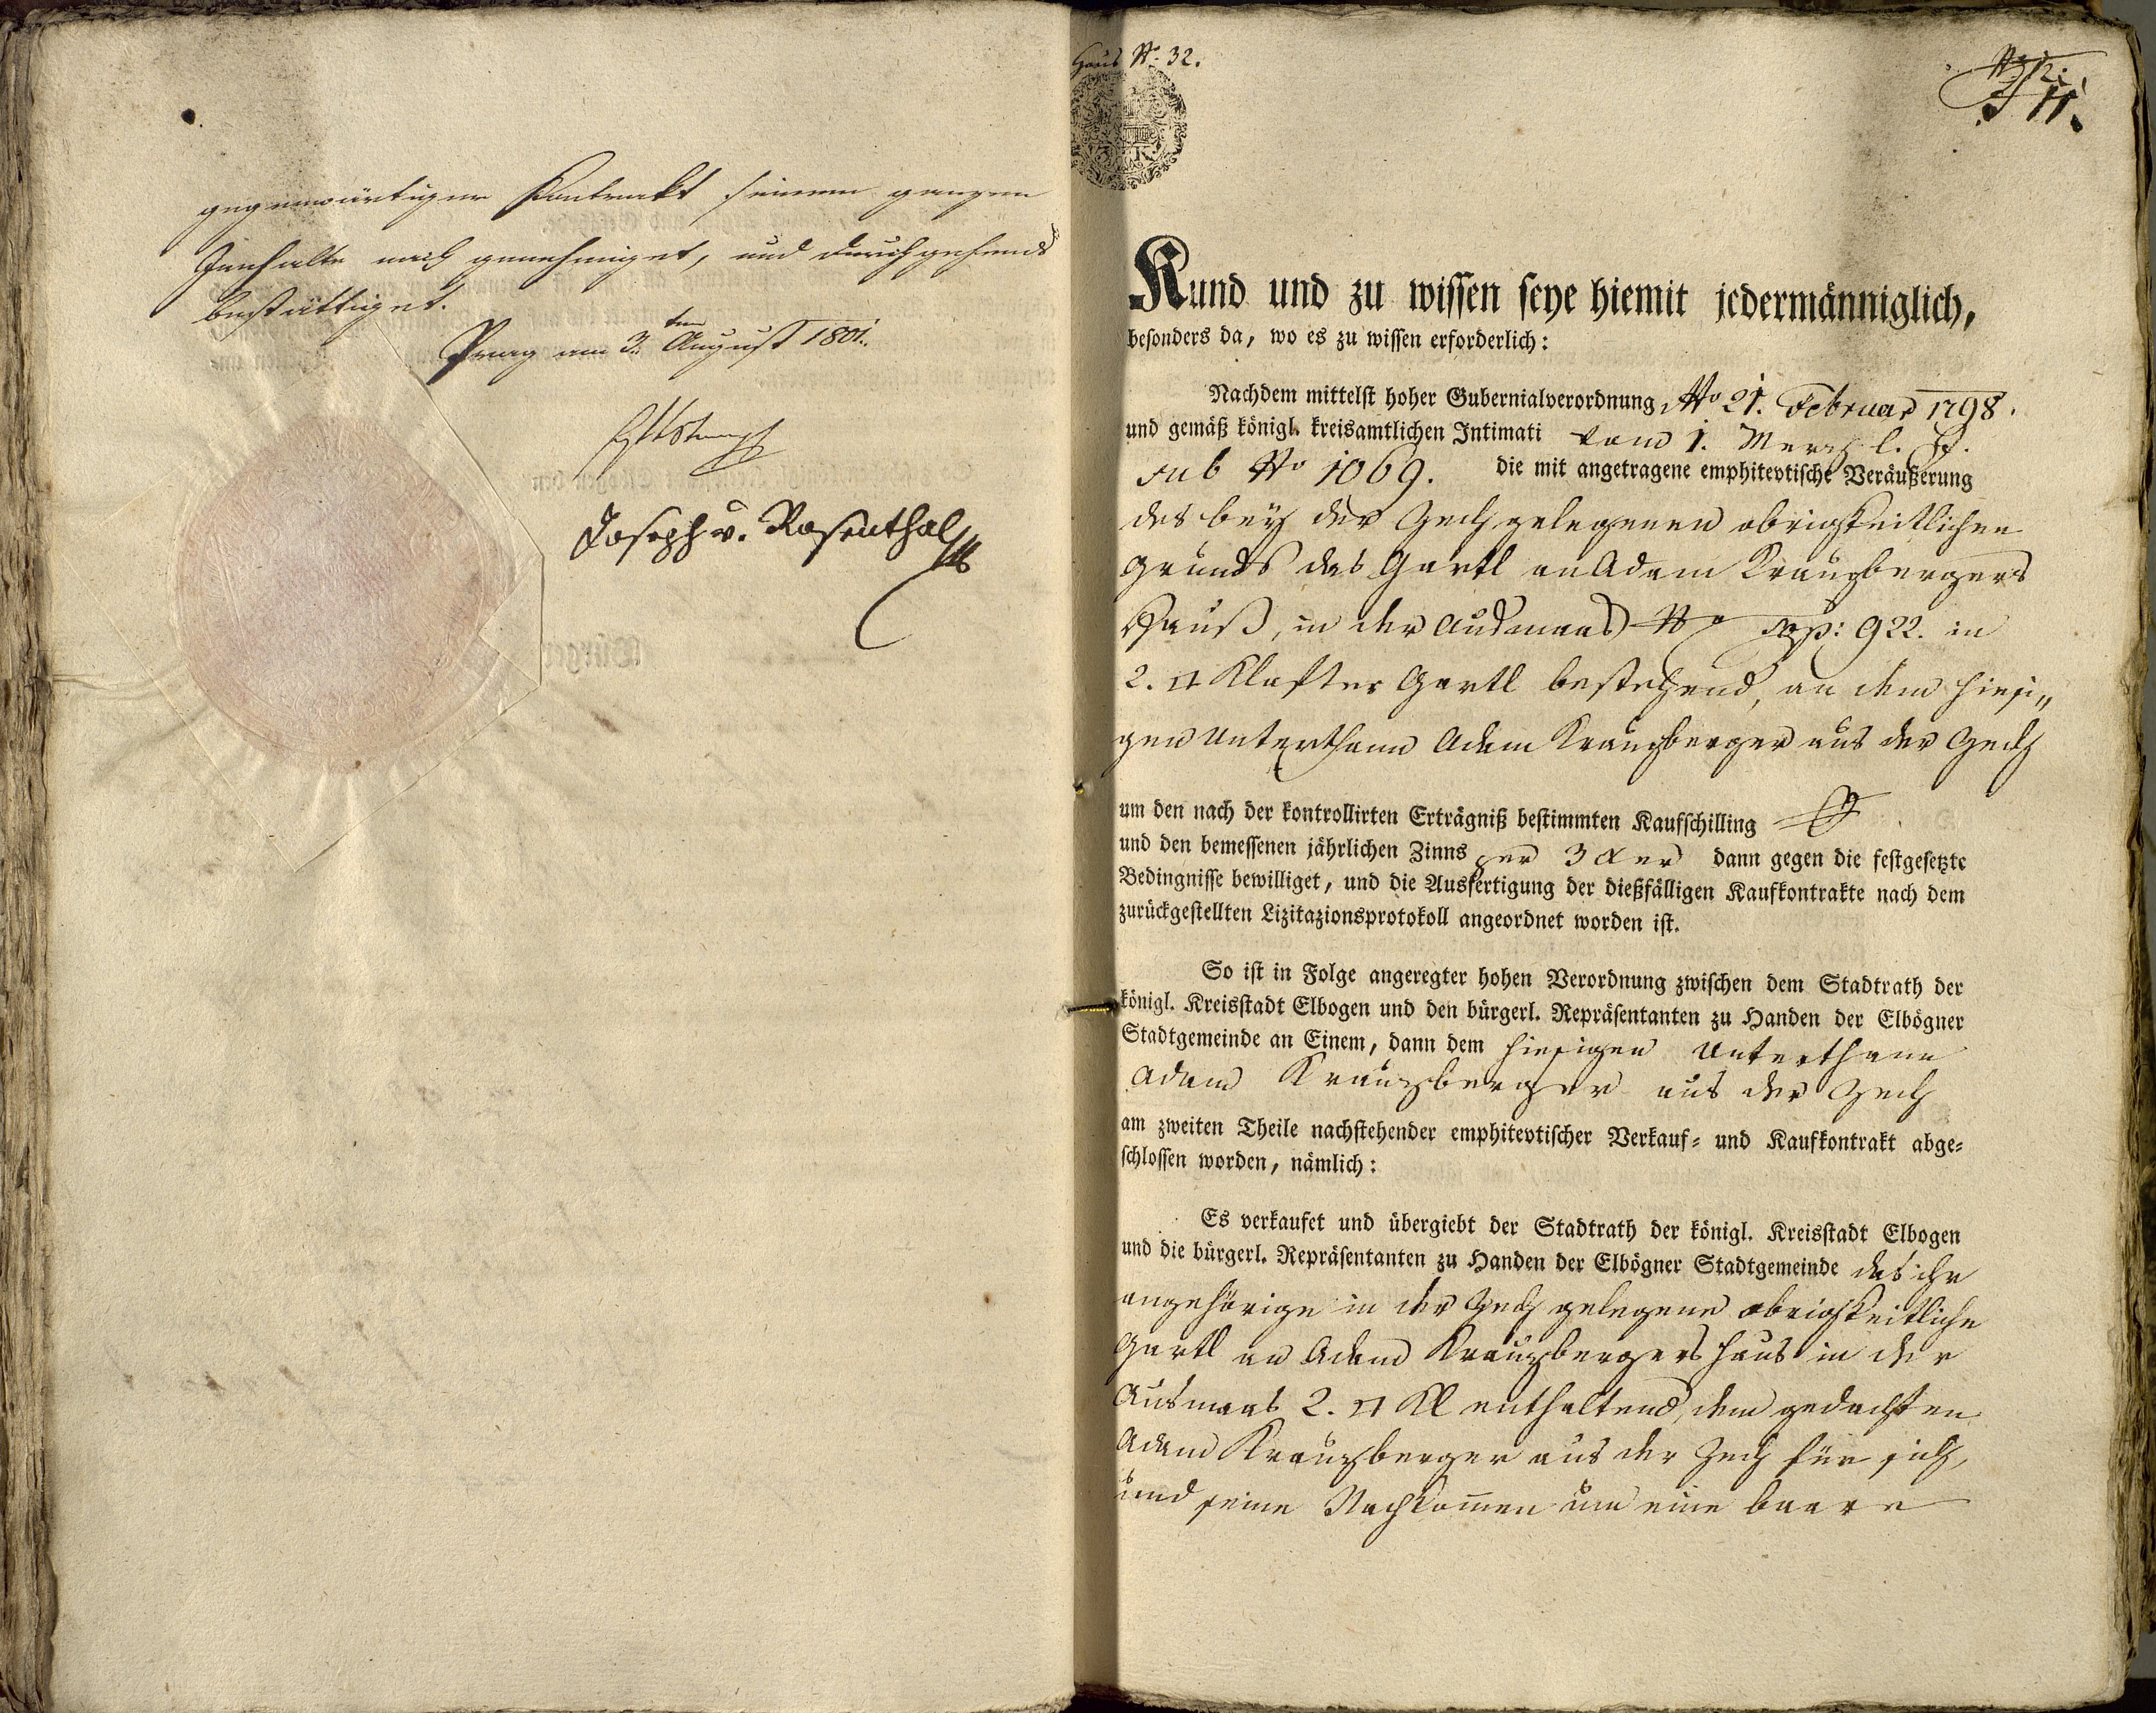 gegenwärtigen Kontrakt seinem ganzen
Innhalte nach genehmiget, und durchgehends
bestättiget.
Prag am 3ten August 1801.
Joseph v. Rosenthal
Haus No. 32.
3 K
11.
Kund und zu wissen seye hiemit jedermänniglich,
besonders da, wo es zu wissen erforderlich:
Nachdem mittelst hoher Gubernialverordnung No 21. Februar 1798.
und gemäß königl. kreisamtlichen Intimati vom 1. Merz l. J.
sub No 1069. die mit angetragene emphitevtische Veräußerung
des bey der Zech gelegenen obrigkeitlichen
Grunds das Gartl an Adam Kreuzbergers
Hauß, in der Ausmaas No top: 922. in
2. □ Klafter Gartl bestehend, an dem hiesi„
gen Unterthann Adam Kreuzberger aus der Zech
um den nach der kontrollirten Erträgniß bestimmten Kaufschilling
und den bemessenen jährlichen Zinns per 3 xer dann gegen die festgesetzte
Bedingnisse bewilliget, und die Ausfertigung der dießfälligen Kaufkontrakte nach dem
zurückgestellten Lizitazionsprotokoll angeordnet worden ist.
So ist in Folge angeregter hohen Verordnung zwischen dem Stadtrath der
königl. Kreisstadt Elbogen und den bürgerl. Repräsentanten zu Handen der Elbögner
Stadtgemeinde an Einem, dann dem hiesigen Unterthann
Adam Kreuzberger aus der Zech
am zweiten Theile nachstehender emphitevtischer Verkauf- und Kaufkontrakt abge-
schlossen worden, nämlich:
Es verkaufet und übergiebt der Stadtrath der königl. Kreisstadt Elbogen
und die bürgerl. Repräsentanten zu Handen der Elbögner Stadtgemeinde das ihr
angehörige in der Zech gelegene obrigkeitliche
Gartl an Adam Kreuzbergers Haus in der
Ausmaas 2. □ Kl enthaltend, dem gedachten
Adam Kreuzberger aus der Zech für sich,
und seine Nachkomen um eine baare